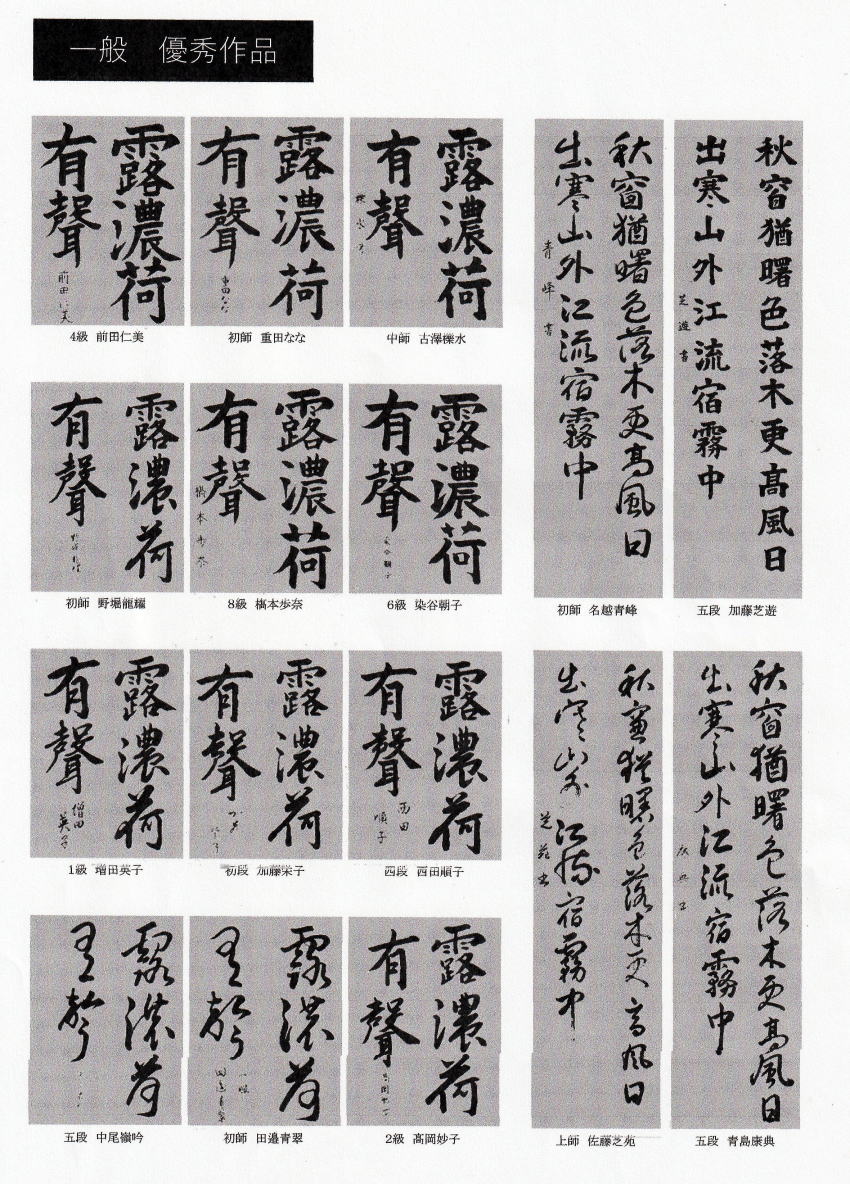 一般　優秀作品
露濃荷
有聲
前田仁美
4級 前田仁美
露濃荷
有聲
重田なな
初師 重田なな
露濃荷
有聲
中師 古澤櫟水
秋窗猶曙色落木更高風日
出寒山外江流宿霧中
青峰書
初師 名越青峰
秋窗猶曙色落木更高風日
出寒山外江流宿霧中
芝遊書
五段 加藤芝遊
露濃荷
有聲
初師 野堀龍耀
露濃荷
有聲
橋本歩奈
8級 橋本歩奈
露濃荷
有聲
染谷朝子
6級 染谷朝子
露濃荷
有聲
増田
英子
1級 増田英子
露濃荷
有聲
初段 加藤栄子
露濃荷
有聲
西田
順子
四段 西田順子
秋窗猶曙色落木更高風日
出寒山外江流宿霧中
芝苑書
上師 佐藤芝苑
秋窗猶曙色落木更高風日
出寒山外江流宿霧中
五段 青島康典
露濃荷
有聲
五段 中尾嶺吟
露濃荷
有聲
初師 田邉青翠
露濃荷
有聲
2級 高岡妙子